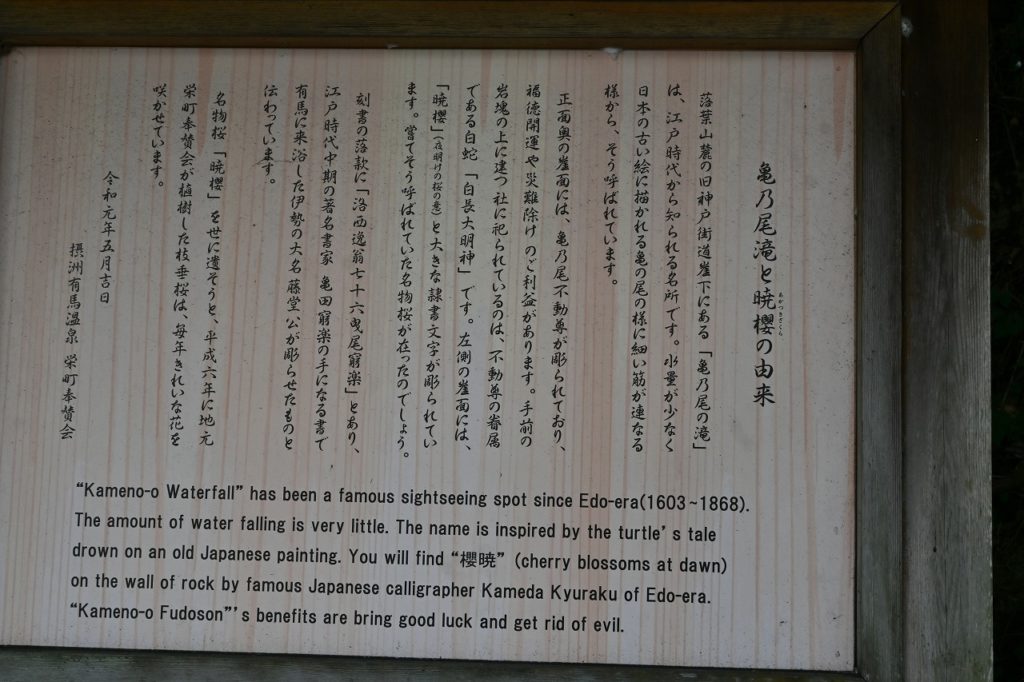 亀乃尾滝と暁櫻の由来
あかつきざくら
落葉山麓の旧神戸街道崖下にある「亀乃尾の滝」
は、江戸時代から知られる名所です。水量が少なく
日本の古い絵に描かれる亀の尾の様に細い筋が連なる
様から、そう呼ばれています。
正面奥の崖面には、亀乃尾不動尊が彫られており、
福徳開運や災難除けのご利益があります。手前の
岩塊の上に建つ社に祀られているのは、不動尊の眷属
である白蛇「白長大明神」です。左側の崖面には、
「暁櫻」(夜明けの桜の意)と大きな隷書文字が彫られてい
ます。嘗てそう呼ばれていた名物桜が在ったのでしょう。
刻書の落款に「洛西逸翁七十六曳尾窮楽」とあり、
江戸時代中期の著名書家 亀田窮楽の手になる書で
有馬に来浴した伊勢の大名 藤堂公が彫らせたものと
伝わっています。
名物桜「暁櫻」を世に遺そうと、平成六年に地元
栄町奉賛会が植樹した枝垂桜は、毎年きれいな花を
咲かせています。
令和元年五月吉日
摂洲有馬温泉 栄町奉賛会
“Kameno-o Waterfall” has been a famous sightseeing spot since Edo-era(1603~1868).
The amount of water falling is very little. The name is inspired by the turtle’s tale
drown on an old Japanese painting. You will find “櫻暁” (cherry blossoms at dawn)
on the wall of rock by famous Japanese calligrapher Kameda Kyuraku of Edo-era.
“Kameno-o Fudoson”’s benefits are bring good luck and get rid of evil.